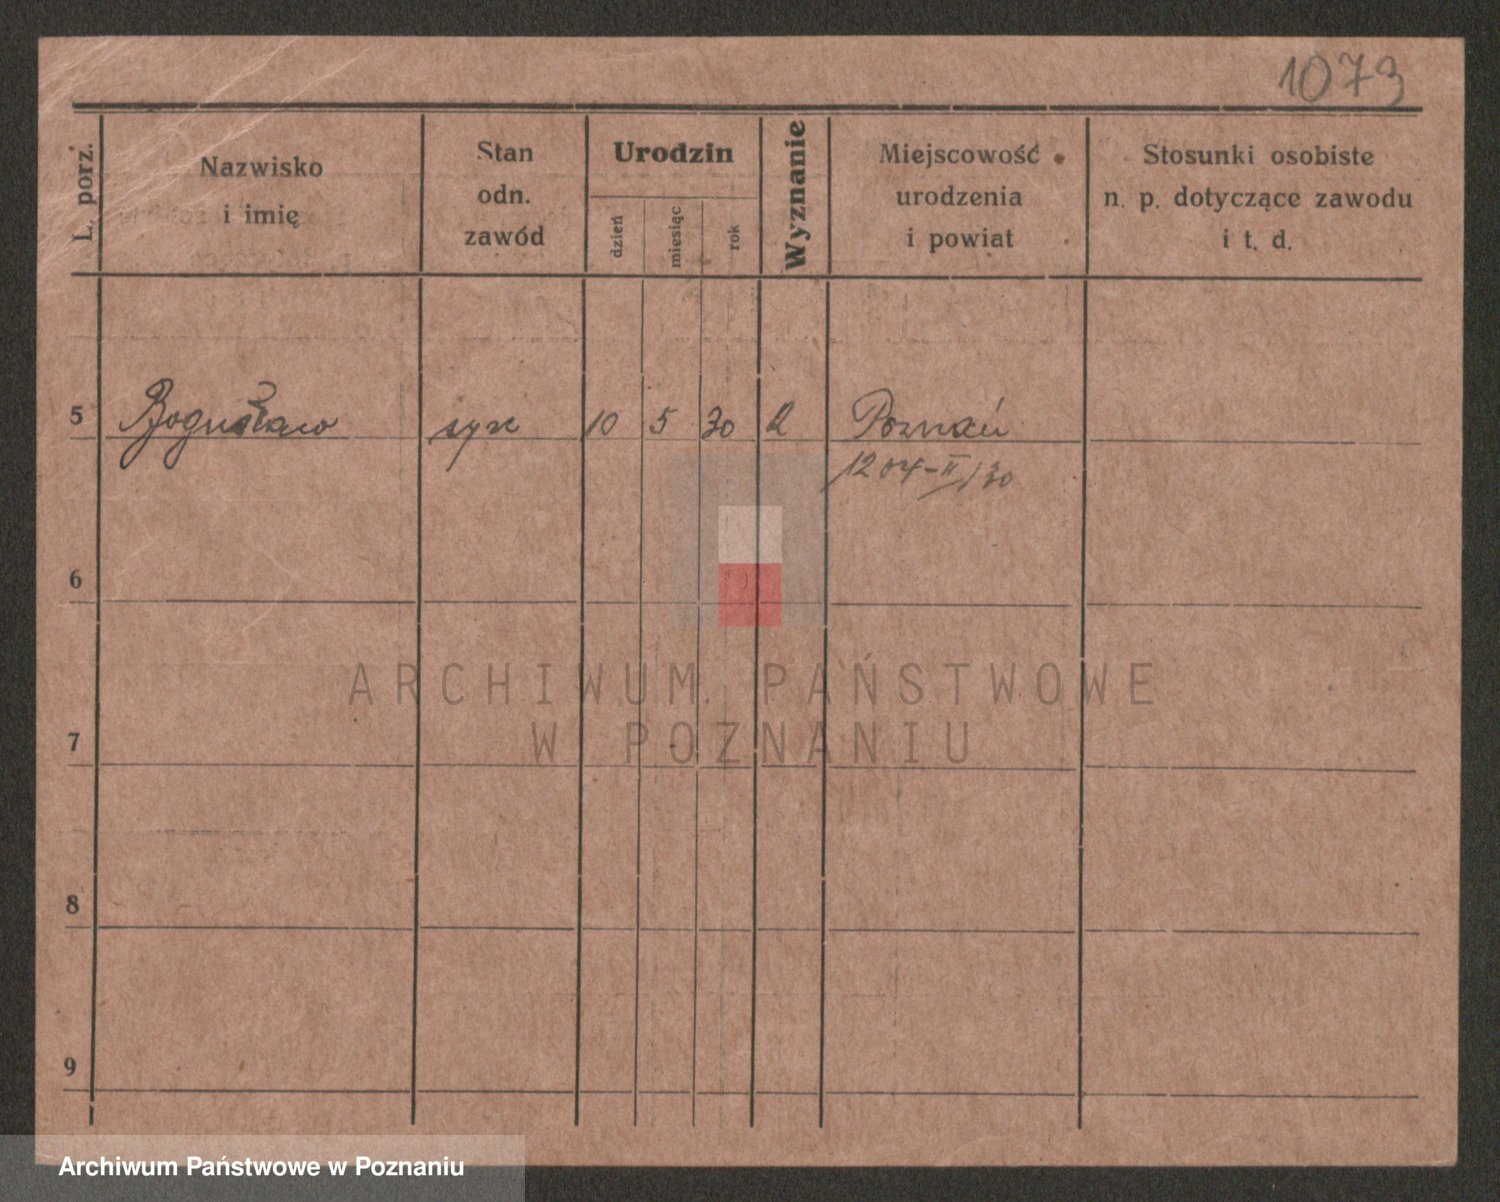 1073
L. porz.
Nazwisko
i imię
Stan
odn.
zawód
Urodzin
dzień
miesiąc
rok
Wyznanie
Miejscowość
urodzenia
i powiat
Stosunki osobiste
n. p. dotyczące zawodu
i t. d.
5 Bogusław syn 10 5 30 Poznań
1204-II/30
6
7
8
9
ARCHIWUM PAŃSTWOWE
W POZNANIU
Archiwum Państwowe w Poznaniu